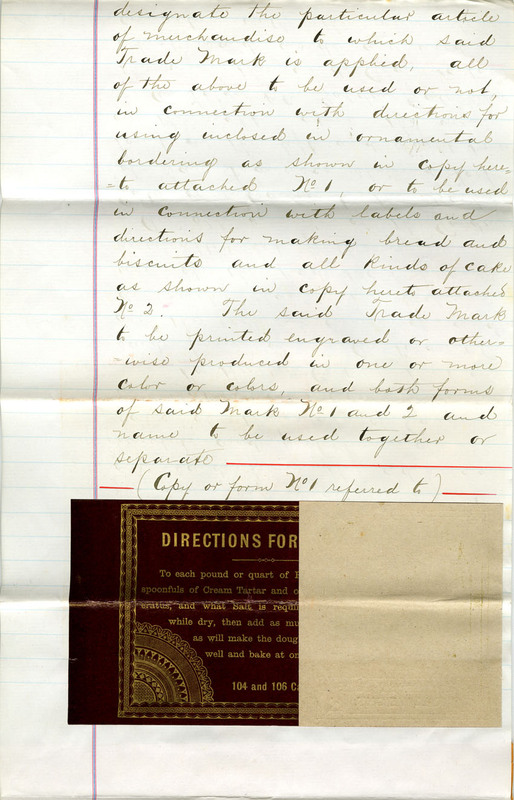 designate the particular article
of merchandise to which said
Trade Mark is applied, all
of the above to be used or not,
in connection with directions for
using inclosed in ornamental
bordering as shown in copy here=
=to attached No 1, or to be used
in connection with labels and
directions for making bread and
biscuits and all kinds of cake
as shown in copy hereto attached
No 2. The said Trade Mark
to be printed engraved or other=
=wise produced in one or more
color or colors, and both forms
of said Mark No 1 and 2 and
name to be used together or
separate
(Copy or form No 1 referred to)
DIRECTIONS FOR
To each pound or quart of
spoonfuls of Cream Tartar and
eratus, and what Salt is
while dry, then add as
as will make the
well and bake at
104 and 106